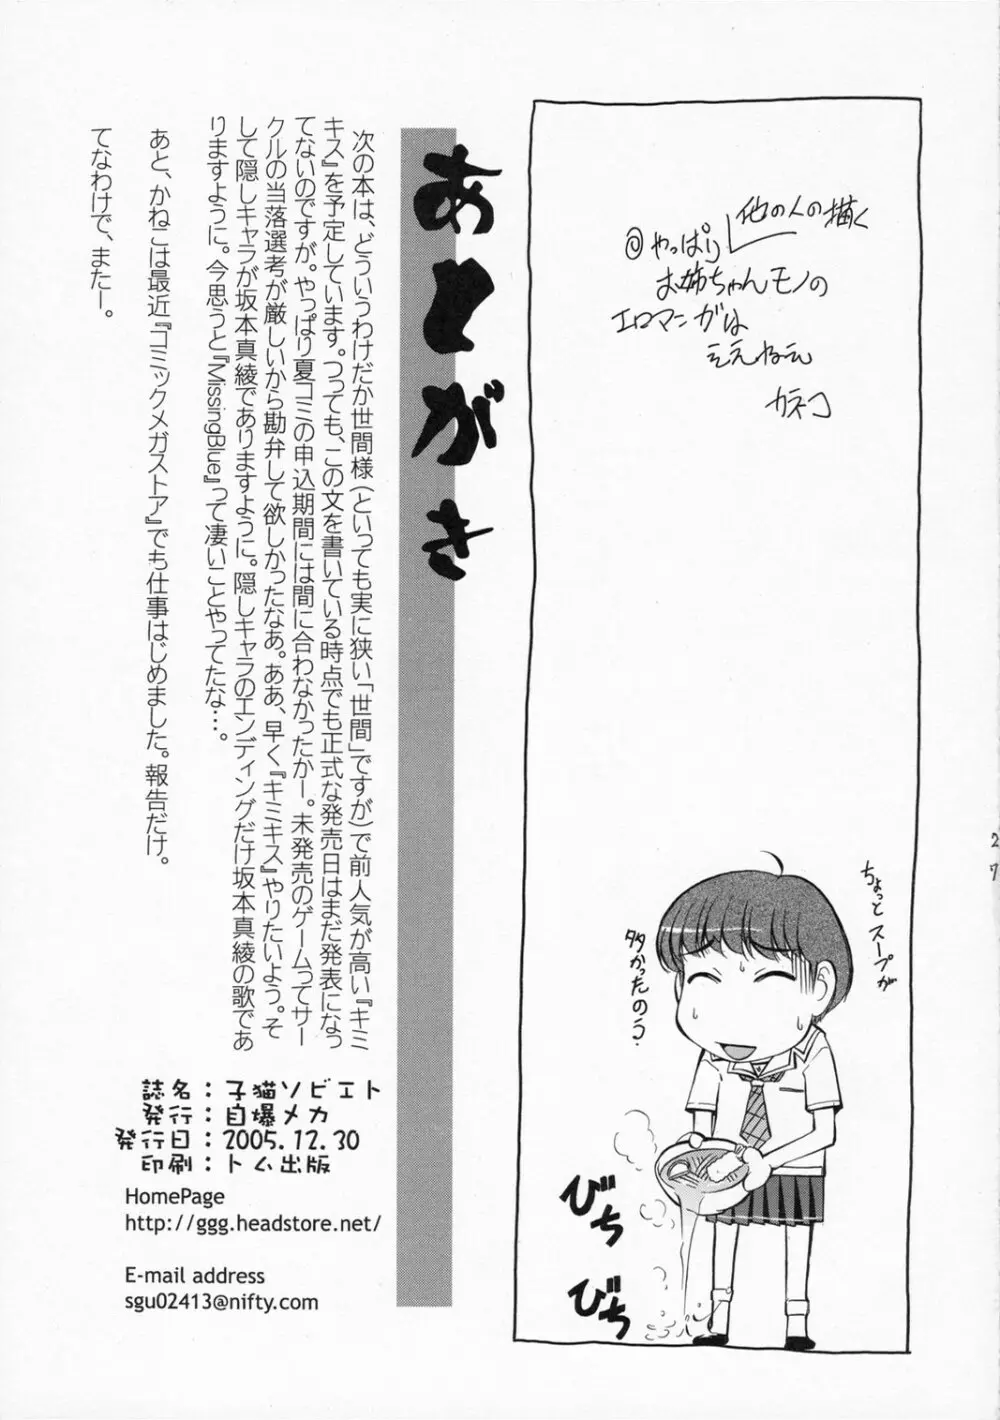 他の人の描く
@やっぱり
お姉ちゃんモノの
エロマンガは
ええねえ
カネコ
27
ちょっとスープが
多かったのう.
びち
びち
あとがき
次の本は、どういうわけだか世間様(といっても実に狭い「世間」ですが)で前人気が高い『キミ
キス』を予定しています。つっても、この文を書いている時点でも正式な発売日はまだ発表になっ
てないのですが。やっぱり夏コミの申込期間には間に合わなかったかー。未発売のゲームってサー
クルの当落選考が厳しいから勘弁して欲しかったなあ。ああ、早く『キミキス』やりたいよう。そ
して隠しキャラが坂本真綾でありますように。隠しキャラのエンディングだけ坂本真綾の歌であ
りますように。今思うと『MissingBlue』って凄いことやってたな…。
あと、かねこは最近『コミックメガストア』でも仕事はじめました。報告だけ。
てなわけで、またー。
誌名：子猫ソビエト
発行：自爆メカ
発行日：2005.12.30
印刷：トム出版
HomePage
http://ggg.headstore.net/
E-mail address
sgu02413@nifty.com